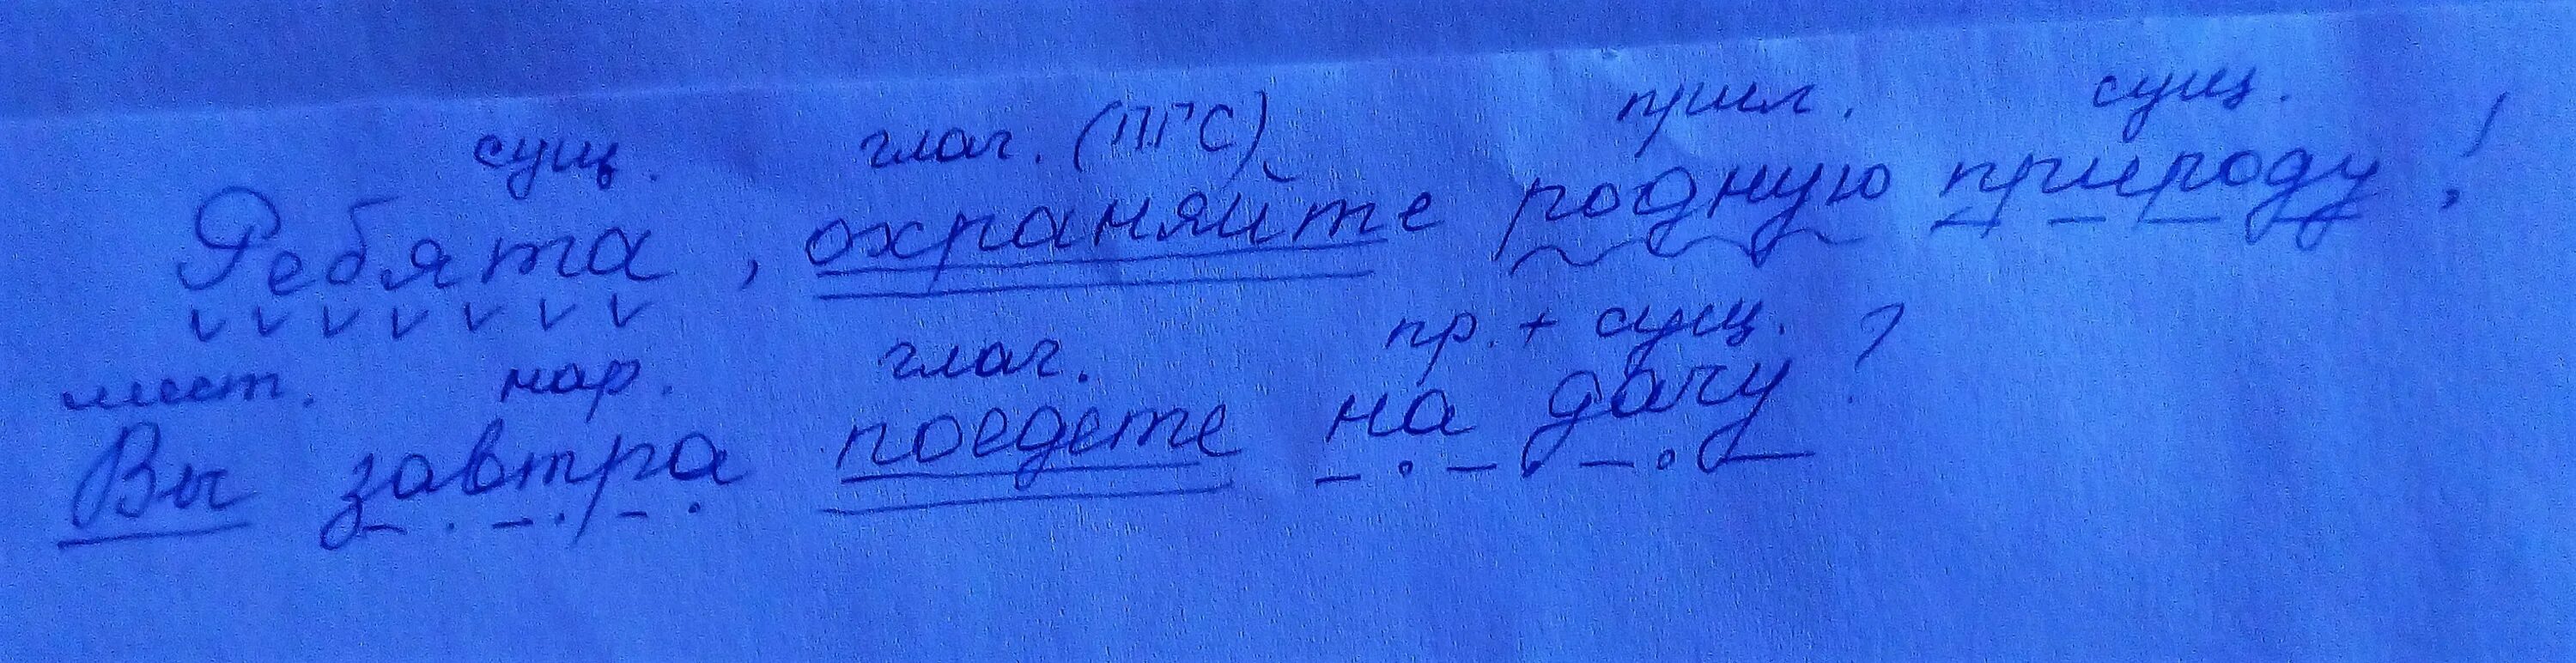 сущ. глаг. (ПГС) прил. сущ.
Ребята, охраняйте родную природу!
мест. нар. глаг. пр. + сущ.
Вы завтра поедете на дачу?